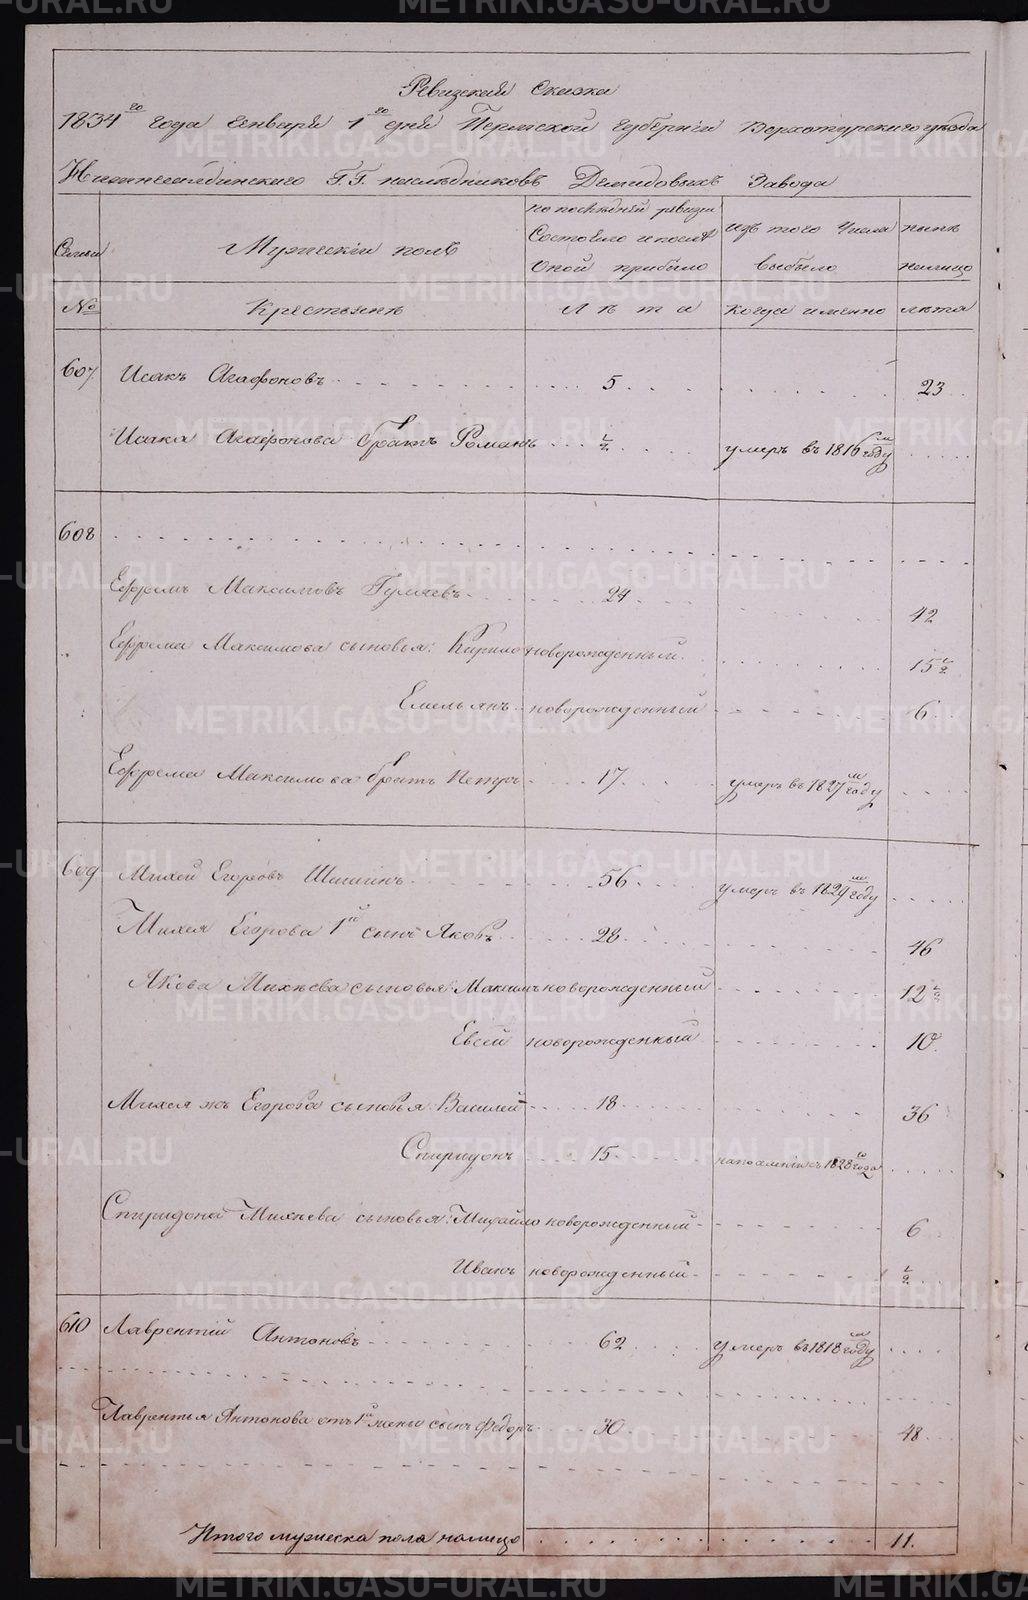 Ревизская Сказка
1834го года Января 1го дня Пермской Губернiи Верхотурскаго уезда
Нижнетагилинскаго Г.Г. наследниковъ Демидовыхъ Завода
Семьи
Мужескiй полъ
по последней ревизiи Состояло и после Оной прибыло
изъ того Числа выбыло
ныне налицо
№
Крестьяне
Лѣта
когда именно
лѣта
607. Исакъ Агафоновъ 5 23
Исака Агафонова братъ Романъ ½ умеръ въ 1816м году
608
Ефремъ Максимовъ Гуляевъ 24 42
Ефрема Максимова сыновья: Кирило новорожденный 15½
Емельянъ новорожденный 6
Ефрема Максимова братъ Петръ 17 умеръ въ 1827м году
609 Михей Егоровъ Шишинъ 56 умеръ въ 1829м году
Михея Егорова 1й сынъ Яковъ 28 46
Якова Михѣева сыновья: Максимъ новорожденный 12½
Евсей новорожденный 10
Михея жъ Егорова сыновья: Василей 18 36
Спиридонъ 15 1828го года
Спиридона Михѣева сыновья: Михайло новорожденный 6
Иванъ новорожденный ½
610 Лаврентiй Антоновъ 62 умеръ въ 1818м году
Лаврентья Антонова отъ 1й жены сынъ Федоръ 30 48
Итого мужеска пола налицо 11.
METRIKI.GASO-URAL.RU